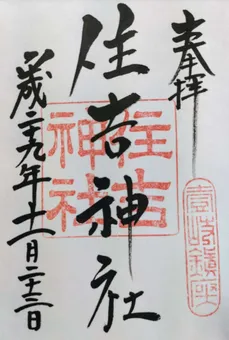 奉拝
壹岐鎮座
住吉神社
住吉神社
平成二十九年十一月二十三日